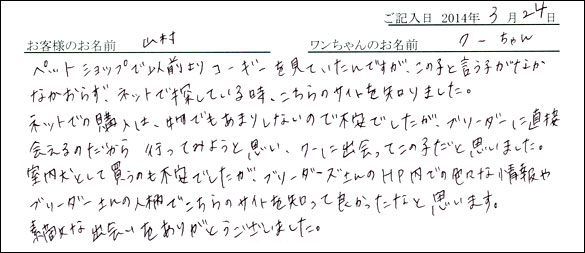 ご記入日 2014年 3月 24日
お客様のお名前 山村 ワンちゃんのお名前 クーちゃん
ペットショップで以前よりコーギーを見ていたんですが、この子と言う子がなか
なかおらず、ネットで探している時、こちらのサイトを知りました。
ネットでの購入は、物でもあまりしないので不安でしたが、ブリーダーに直接
会えるのだから 行ってみようと思い、クーに出会ってこの子だと思いました。
室内犬として買うのも不安でしたが、ブリーダーズさんのHP内での色々な情報や
ブリーダーさんの人柄でこちらのサイトを知って良かったなと思います。
素敵な出会いをありがとうございました。